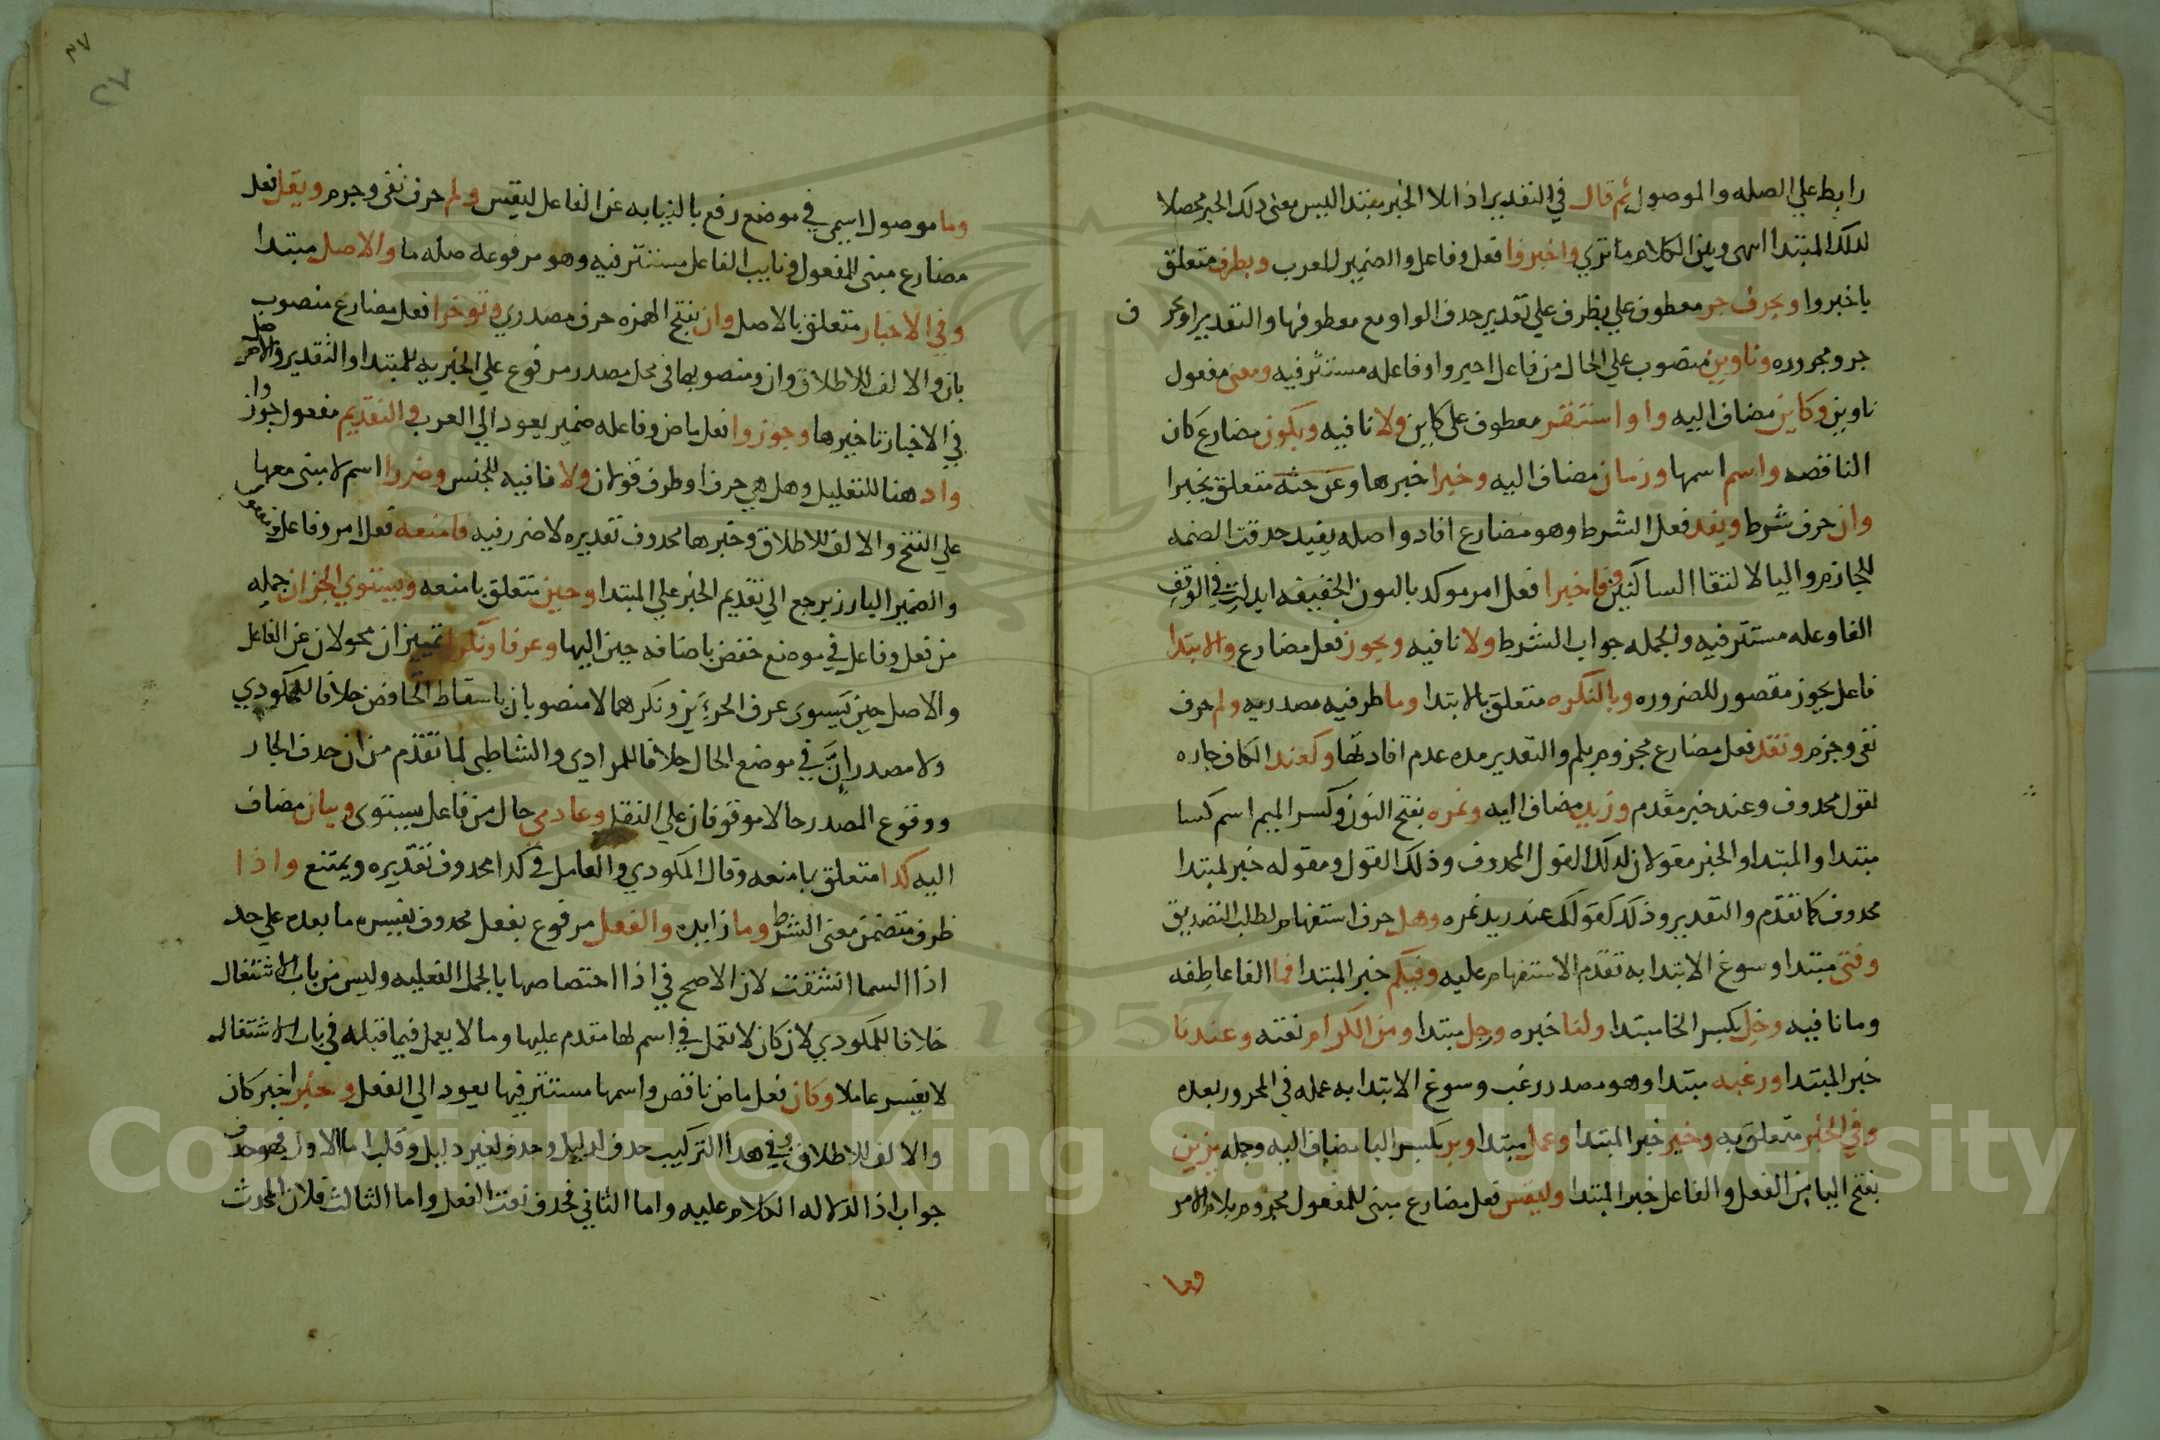 رابط علي الصله والموصول ثم قال في التقدير اذا لا الخبر مبتدا ليس معنى ذلك الخبر محصلا
لذلك المبتدا انتهى وبين الكلام ما تري واخبروا فعل وفاعل والضمير للعرب وبظرف متعلق
باخبروا وبحرف جر معطوف علي بظرف علي تقدير حذف الواو مع معطوفها والتقدير او بحرف
جر ومجروره وناوين منصوب علي الحال من فاعل اخبروا وفاعله مستتر فيه ومعنى مفعول
ناوين وكاين مضاف اليه واو استقر معطوف على كاين ولا نافيه ويكون مضارع كان
الناقصه واسم اسمها وزمان مضاف اليه وخبرا خبرها وعن جثه متعلق بخبرا
وان حرف شرط ويفد فعل الشرط وهو مضارع افاد واصله يفيد حذفت الضمه
للجازم واليا لالتقا الساكنين وفاخبرا فعل امر موكد بالنون الخفيفه ابدلت في الوقف
الفا وفاعله مستتر فيه والجمله جواب الشرط ولا نافيه ويجوز فعل مضارع والابتدا
فاعل يجوز مقصور للضروره وبالنكره متعلق بالابتدا وما ظرفيه مصدريه ولم حرف
نفى وجزم وتفد فعل مضارع مجزوم بلم والتقدير مده عدم افادتها وكعند الكاف جاره
لقول محذوف وعند خبر مقدم وزيد مضاف اليه ونمره بفتح النون وكسر الميم اسم كسا
مبتدا والمبتدا والخبر مقولان لذلك القول المحذوف وذلك القول ومقوله خبر لمبتدا
محذوف كما تقدم والتقدير وذلك كقولك عند زيد نمره وهل حرف استفهام لطلب التصديق
وفتى مبتدا وسوغ الابتدا به تقدم الاستفهام عليه وفيكم خبر المبتدا فما الفا عاطفه
وما نافيه وخل بكسر الخا مبتدا ولنا خبره ورجل مبتدا ومن الكرام نعته وعندنا
خبر المبتدا ورغبه مبتدا وهو مصدر رغب وسوغ الابتدا به عمله في المجرور بعده
وفي الخير متعلق به وخير خبر المبتدا وعمل مبتدا وبر بكسر البا مضاف اليه وجمله يزين
بفتح اليا من الفعل والفاعل خبر المبتدا وليقس فعل مضارع مبنى للمفعول مجزوم بلام الامر
وما
٢٧
٢٧
وما موصول اسمي في موضع رفع بالنيابه عن الفاعل ليقس ولم حرف نفى وجزم ويقل فعل
مضارع مبنى للمفعول ونايب الفاعل مستتر فيه وهو مرفوعه صله ما والاصل مبتدا
وفي الاخبار متعلق بالاصل وان بفتح الهمزه حرف مصدري وتوخرا فعل مضارع منصوب
بان والالف للاطلاق وان ومنصوبها في محل مصدر مرفوع علي الخبريه للمبتدا والتقدير والاصل
في الاخبار تاخيرها وجوزوا فعل ماض وفاعله ضمير يعود الي العرب والتقديم مفعول جوزوا
واذ هنا للتعليل وهل هي حرف او ظرف قولان ولا نافيه للجنس وضررا اسم لا مبنى معها
علي الفتح والالف للاطلاق وخبرها محذوف تقديره لا ضرر فيه فامنعه فعل امر وفاعل ومفعول
والضمير البارز يرجع الي تقديم الخبر علي المبتدا وحين متعلق بامنعه ويستوي الجزان جمله
من فعل وفاعل في موضع خفض باضافه حين اليها وعرفا ونكرا تمييزان محولان عن الفاعل
والاصل حين يستوى عرف الجزءين ونكرهما لا منصوبان باسقاط الخافض خلافا للمكودي
ولا مصدران في موضع الحال خلافا للمرادي والشاطبي لما تقدم من ان حذف الجار
ووقوع المصدر حالا موقوفان علي النقل وعادمي حال من فاعل يستوى وبيان مضاف
اليه كذا متعلق بامنعه وقال المكودي والعامل في كذا محذوف تقديره ويمتنع واذا
ظرف متضمن معنى الشرط وما زايده والفعل مرفوع بفعل محذوف يفسره ما بعده علي حد
اذا السما انشقت لان الاصح في اذا اختصاصها بالجمل الفعليه وليس من باب الاشتغال
خلافا للمكودي لان كان لا تعمل في اسم لها متقدم عليها وما لا يعمل فيما قبله في باب الاشتغال
لا يفسر عاملا وكان فعل ماض ناقص واسمها مستتر فيها يعود الي الفعل وخبرا خبر كان
والالف للاطلاق وفي هذا التركيب حذف لدليل وحذف لغير دليل وقلب اما الاول فهو حذف
جواب اذا لدلاله الكلام عليه واما الثاني فحذف نعت الفعل واما الثالث فلان المحدث
Copyright © King Saud University
1957